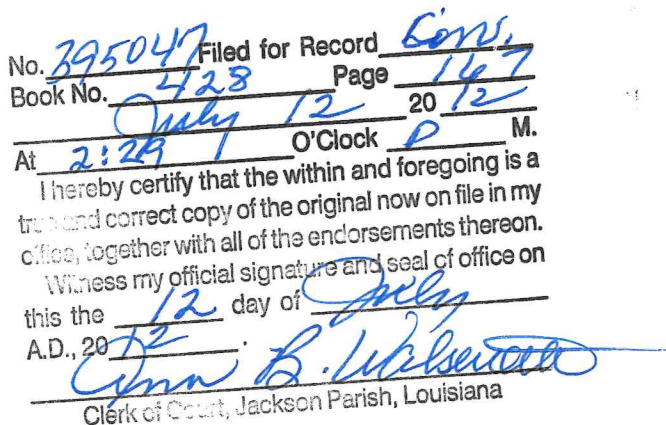 No. 395047 Filed for Record Conv.
Book No. 428 Page 167
July 12 20 12
At 2:29 O'Clock P M.
I hereby certify that the within and foregoing is a
true and correct copy of the original now on file in my
office, together with all of the endorsements thereon.
Witness my official signature and seal of office on
this the 12 day of July
A.D., 20 12 .
Ann B.
Clerk of Court, Jackson Parish, Louisiana